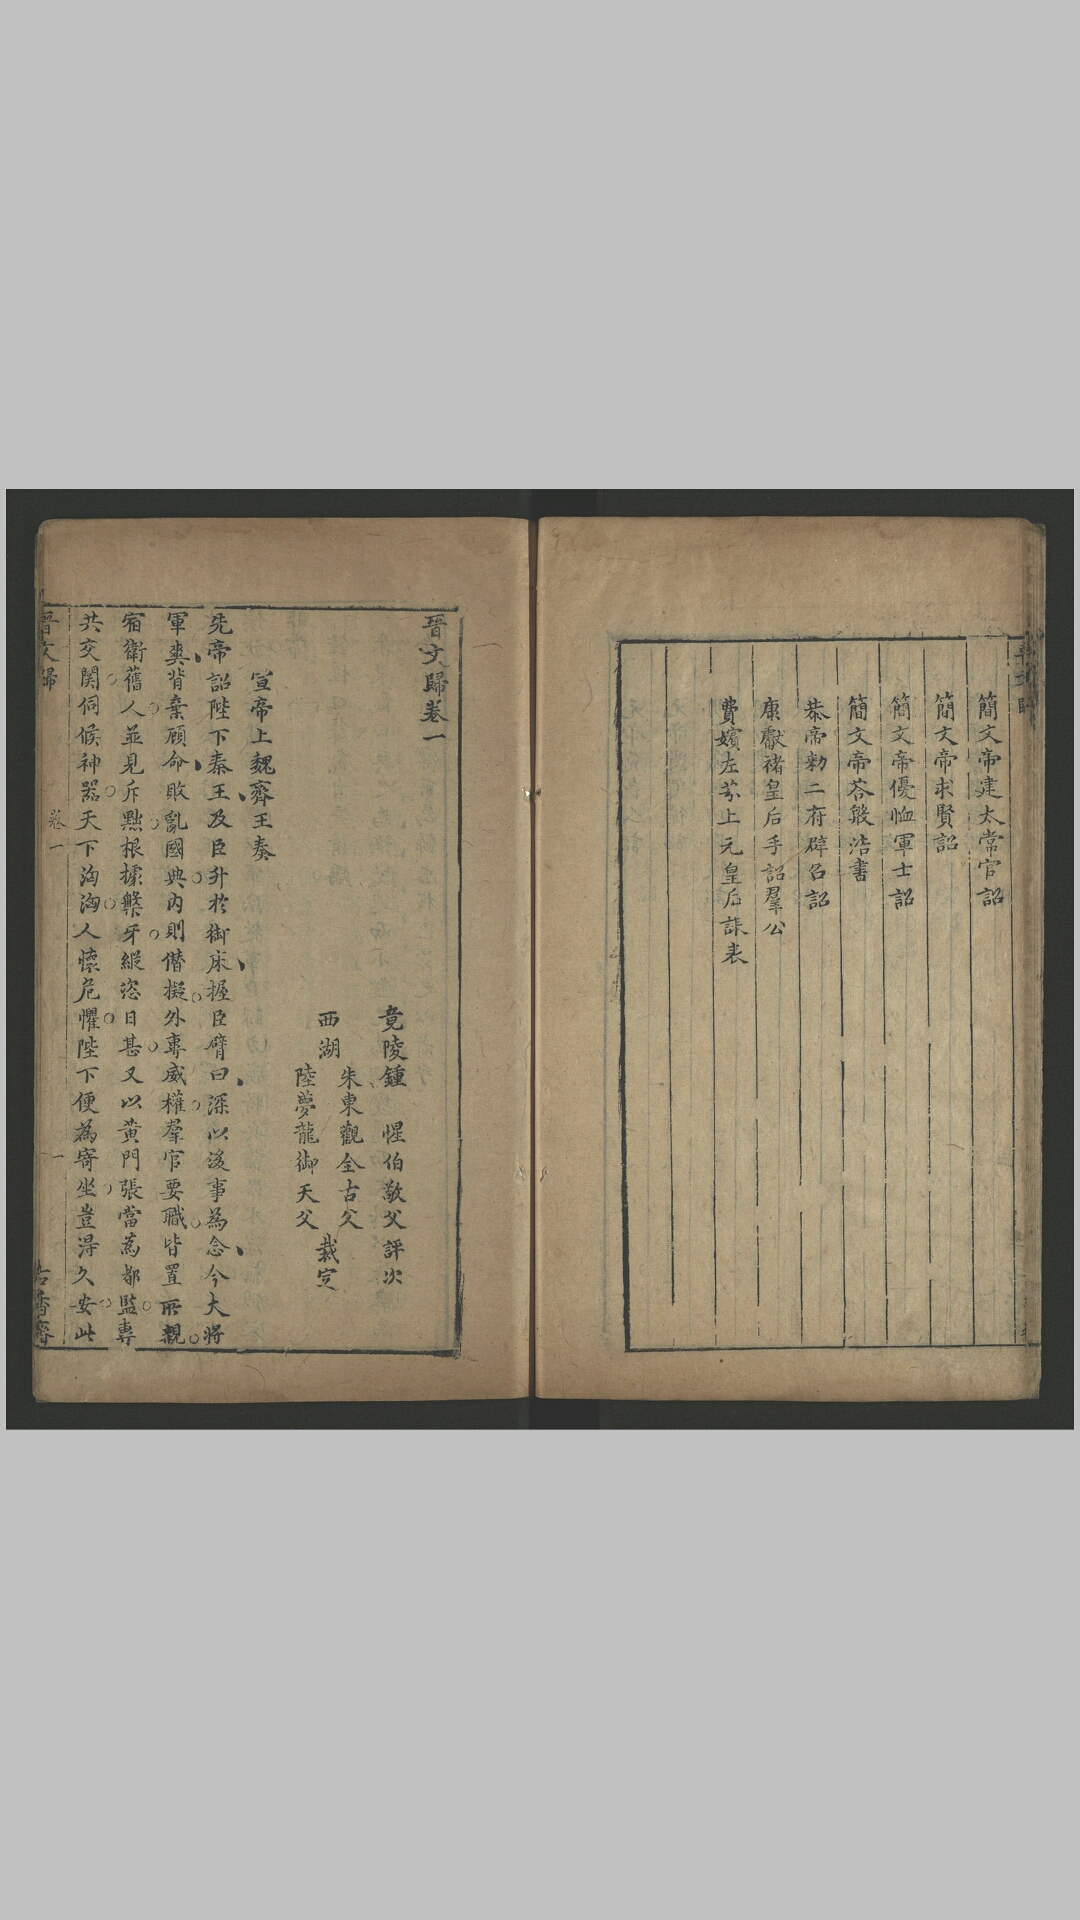 簡文帝建太常官詔
簡文帝求賢詔
簡文帝優恤軍士詔
簡文帝荅殷浩書
恭帝勑二府辟召詔
康獻褚皇后手詔羣公
貴嬪左芬上元皇后誄表
晉文歸卷一
竟陵鍾　惺伯敬父評次
西湖
朱東觀全古父
陸夢龍御天父
裁定
宣帝上魏齊王奏
先帝詔陛下秦王及臣升於御床握臣臂曰深以後事為念今大將
軍爽背棄顧命敗亂國典內則僭擬外專威權羣官要職皆置所親
宿衛舊人並見斥黜根據槃牙縱恣日甚又以黃門張當為都監專
共交関伺候神器天下洶洶人懷危懼陛下便為寄坐豈得久安此
晉文歸
卷一
一
古香齋